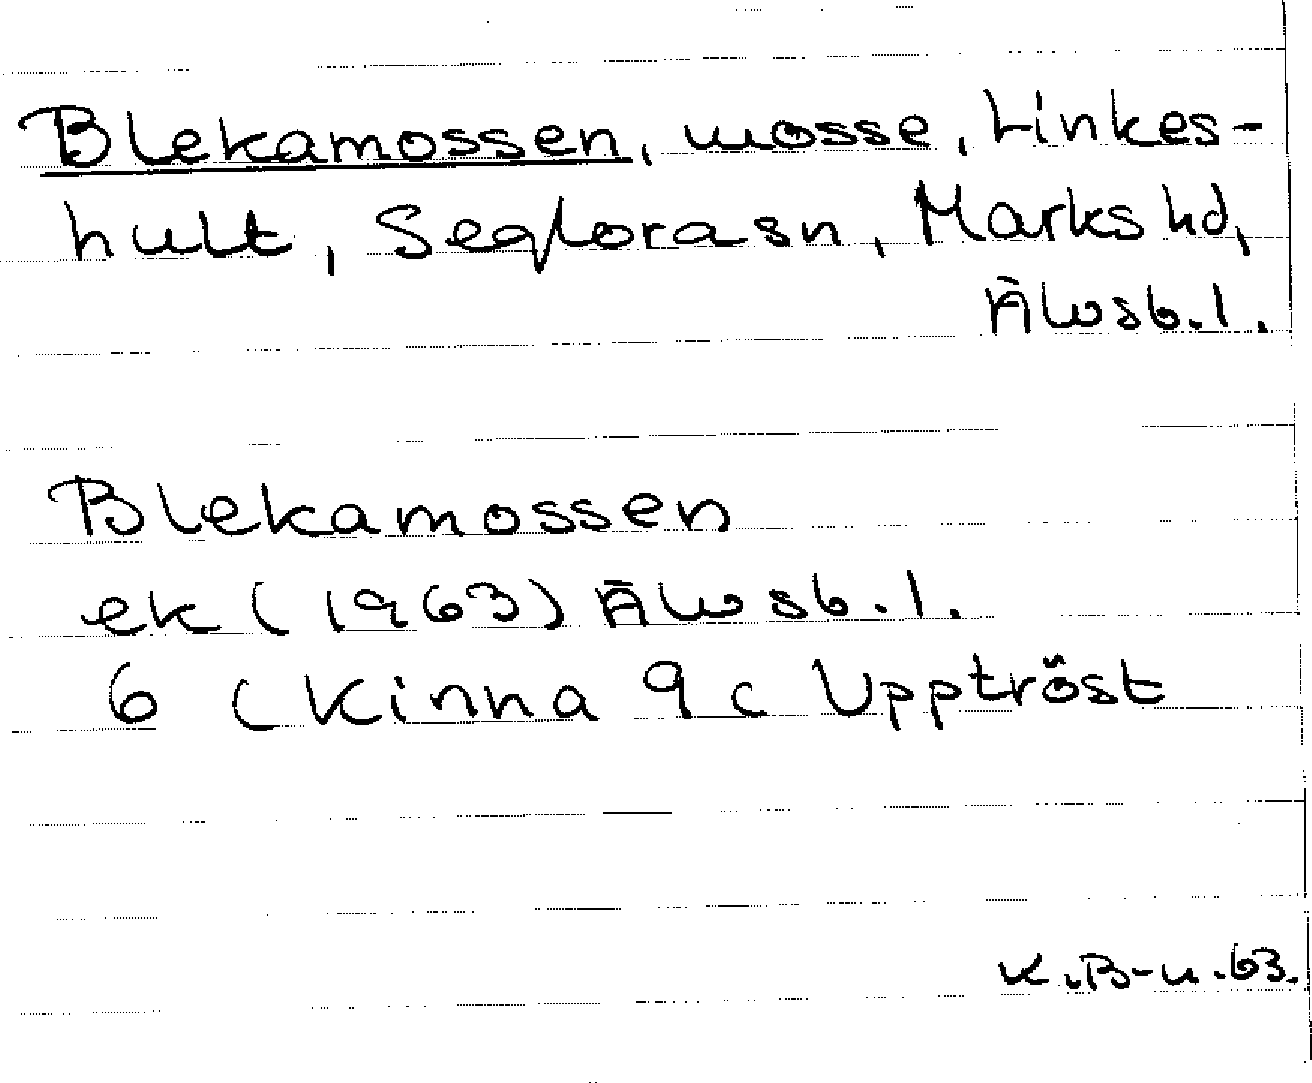 Blekamossen, mosse, Linkes-
hult, Seglora sn, Marks hd,
Älvsb. l.
Blekamossen
ek (1963) Älvsb. l.
6 (Kinna 9c Upptröst
K.B-n.63.